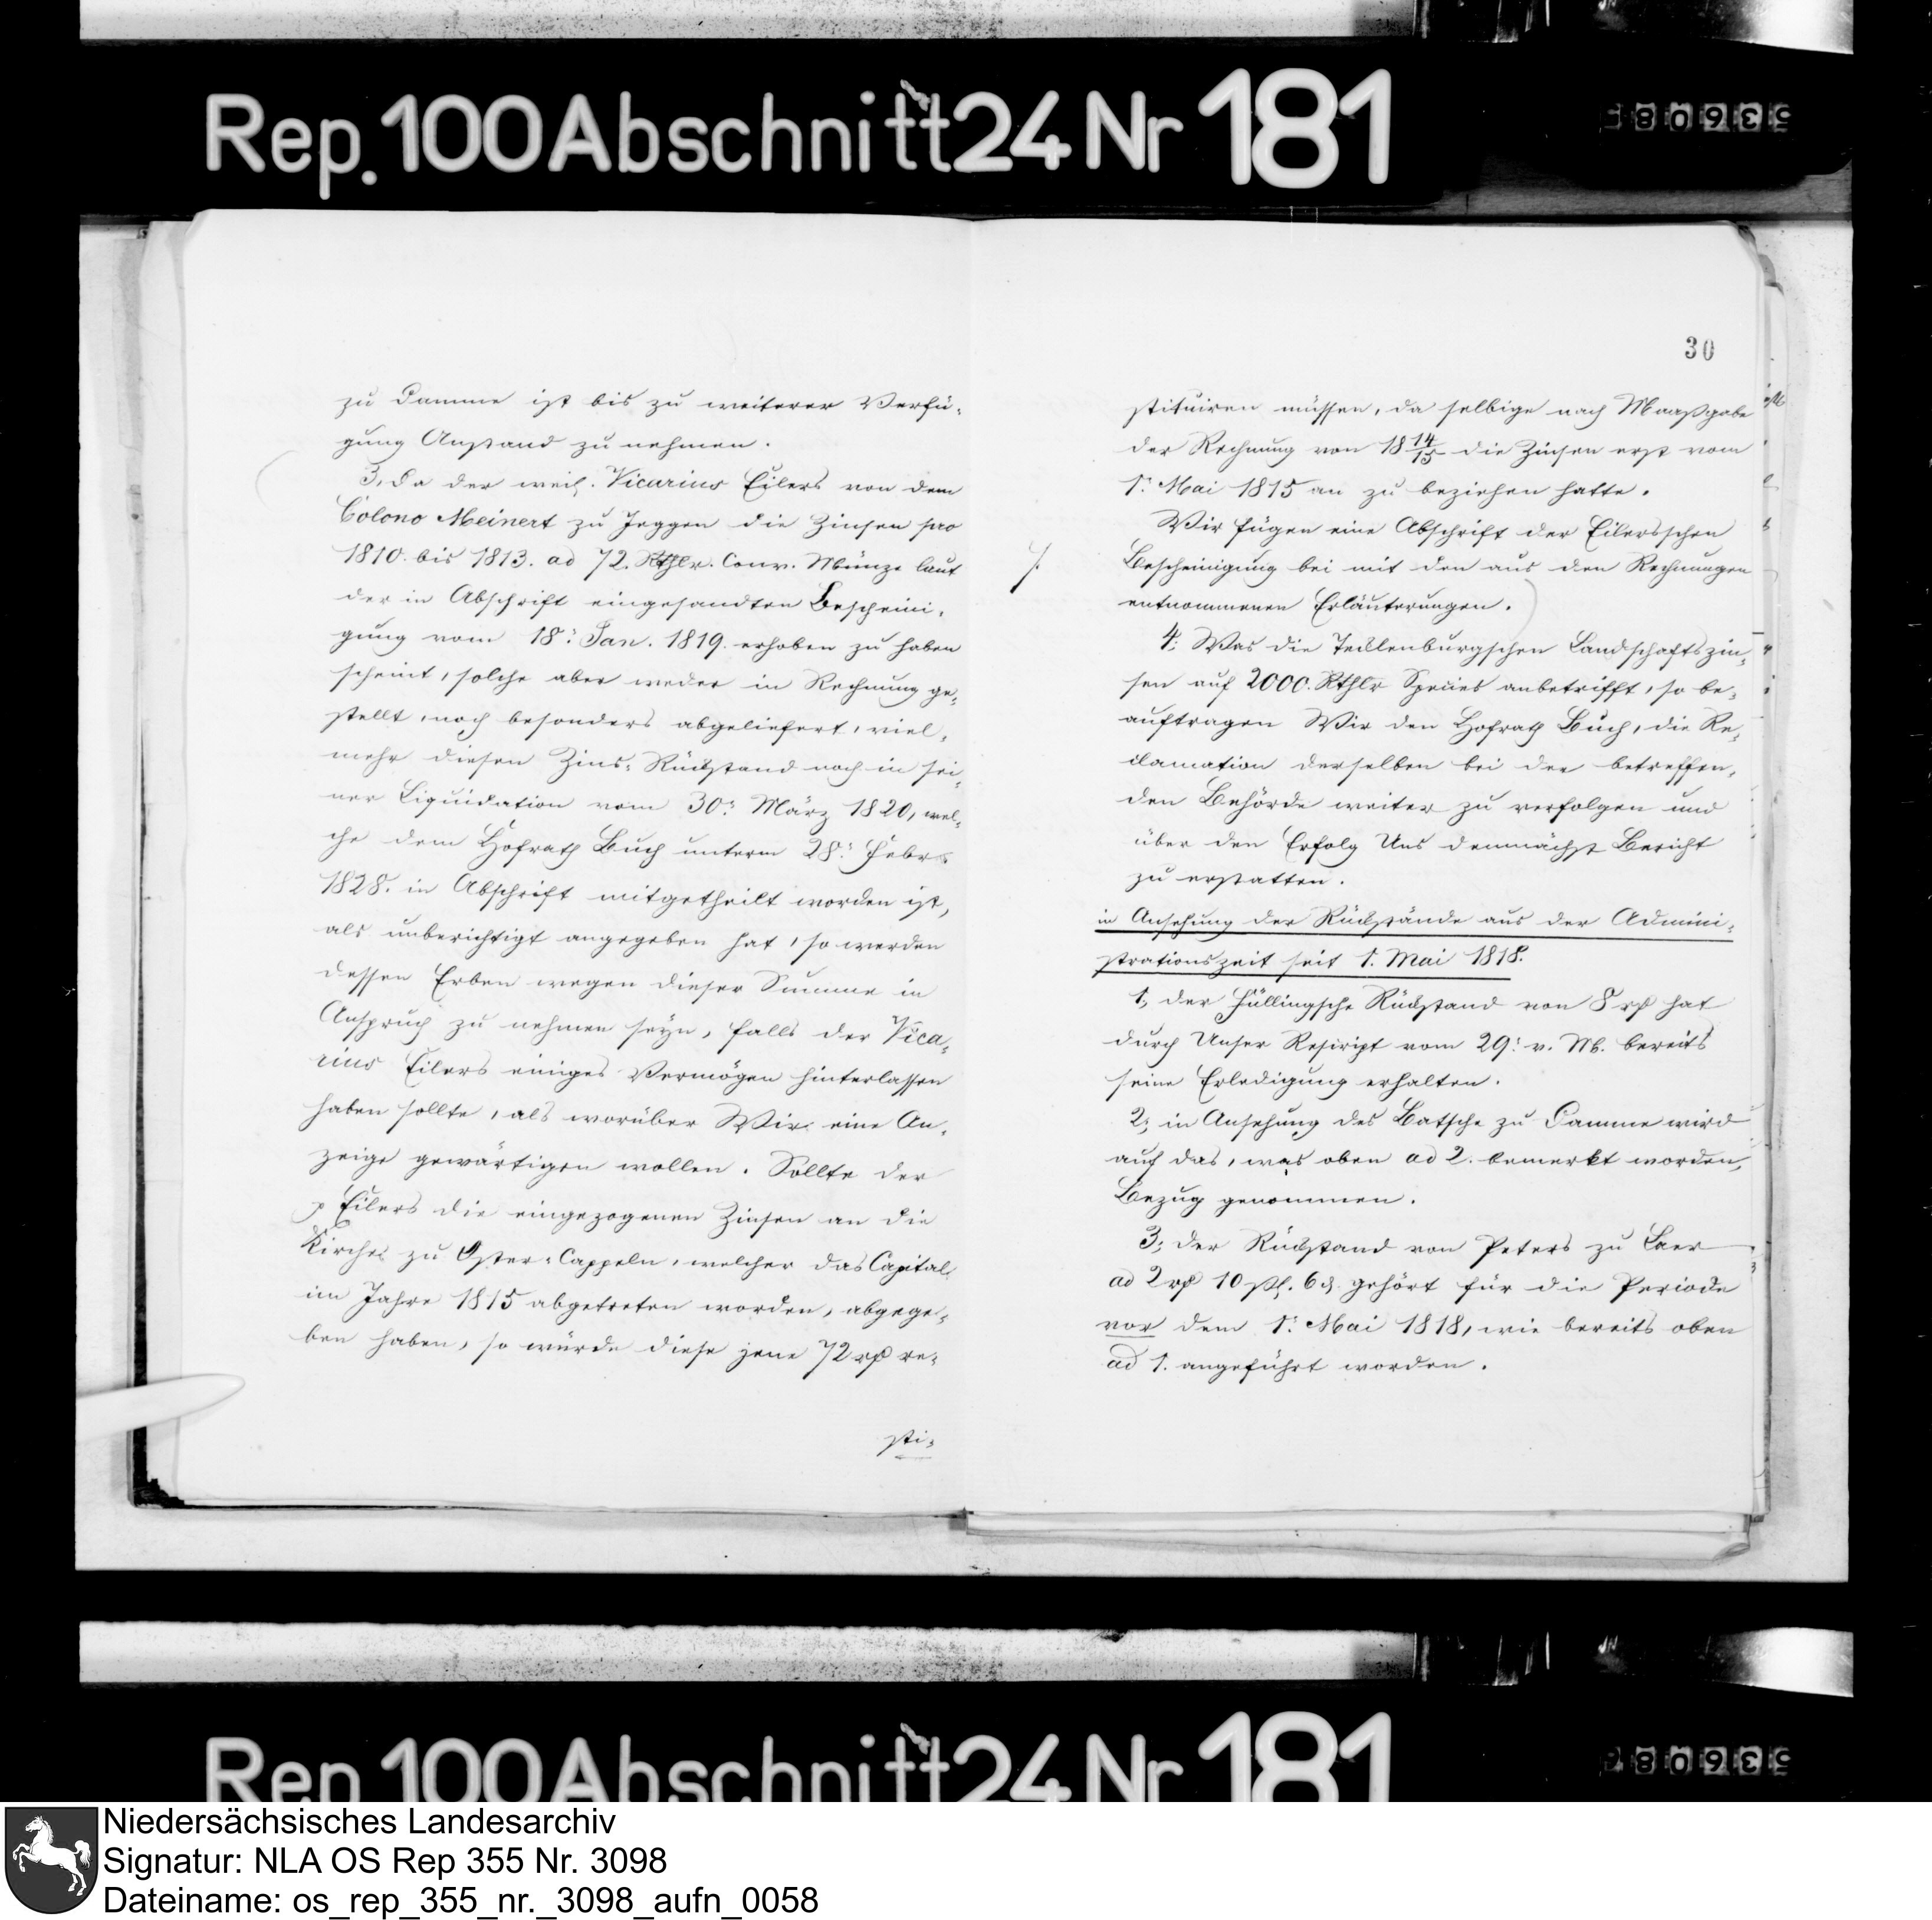 Rep. 100 Abschnitt 24 Nr 181
zu Damme ist bis zu weiterer Verfü-
gung Anstand zu nehmen.
3, Da der weil. Vicarius Eilers von dem
Colono Meinert zu Jeggen die Zinsen pro
1810. bis 1813. ad 72. Rthlr. Conv. Münze laut
der in Abschrift eingesandten Bescheini-
gung vom 18: Jan. 1819. erhoben zu haben
scheint, solche aber weder in Rechnung ge-
stellt, noch besonders abgeliefert, viel-
mehr diesen Zins-Rückstand noch in sei-
ner Liquidation vom 30: März 1820, wel-
che dem Hofrath Buch unterm 28: Febr.
1828. in Abschrift mitgetheilt worden ist,
als unberichtigt angegeben hat, so werden
dessen Erben wegen dieser Summe in
Anspruch zu nehmen seyn, falls der Vica-
rius Eilers einiges Vermögen hinterlassen
haben sollte, als worüber Wir eine An-
zeige gewärtigen wollen. Sollte der
p Eilers die eingezogenen Zinsen an die
Kirche zu Oster-Cappeln, welcher das Capital
im Jahre 1815 abgetreten worden, abgege-
ben haben, so würde diese jene 72 rß re-
sti-
30
stituiren müssen, da selbige nach Maaßgabe
der Rechnung von 18 14/15 die Zinsen erst vom
1: Mai 1815 an zu beziehen hatte.
Wir fügen eine Abschrift der Eilersschen
Bescheinigung bei mit den aus den Rechnungen
entnommenen Erläuterungen.
4: Was die Tecklenburgschen Landschaftszin-
sen auf 2000. Rthlr Species anbetrifft, so be-
auftragen Wir den Hofrath Buch, die Re-
clamation derselben bei der betreffen-
den Behörde weiter zu verfolgen und
über den Erfolg Uns demnächst Bericht
zu erstatten.
in Ansehung der Rückstände aus der Admini-
strationszeit seit 1. Mai 1818.
1, der Hüllingsche Rückstand von 8 rß hat
durch Unser Rescript vom 29: v. M. bereits
seine Erledigung erhalten.
2; in Ansehung des Batsche zu Damme wird
auf das, was oben ad 2. bemerkt worden,
Bezug genommen.
3; der Rückstand von Peters zu Laer
ad 2 rß 10 ßl. 6 d. gehört für die Periode
vor dem 1: Mai 1818, wie bereits oben
ad 1. angeführt worden.
Rep. 100 Abschnitt 24 Nr 181
Niedersächsisches Landesarchiv
Signatur: NLA OS Rep 355 Nr. 3098
Dateiname: os_rep_355_nr._3098_aufn_0058